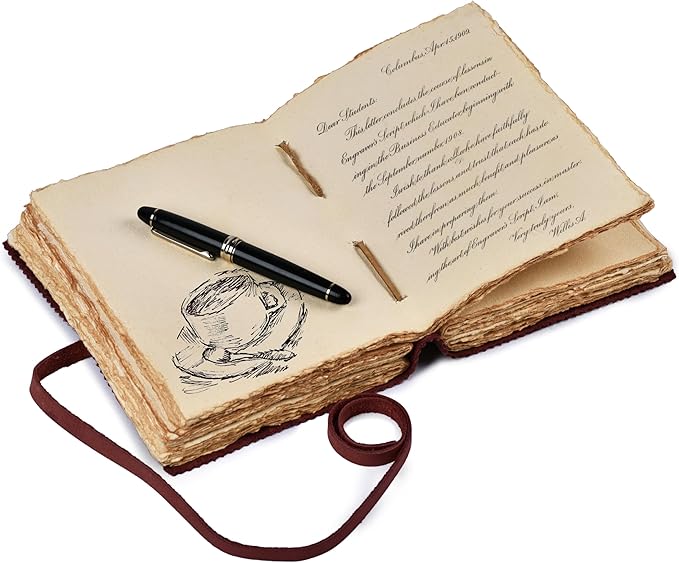 Columbus, Apr. 15, 1909.
Dear Students:
This letter concludes the course of lessons in
Engraver's Script, which I have been conduct-
ing in the Business Educator, beginning with
the September number, 1908.
I wish to thank all who have faithfully
followed the lessons, and trust that each has de-
rived therefrom as much benefit and pleasure as
I have in preparing them.
With best wishes for your success in master-
ing the art of Engraver's Script, I am,
Very truly yours,
Willis A.